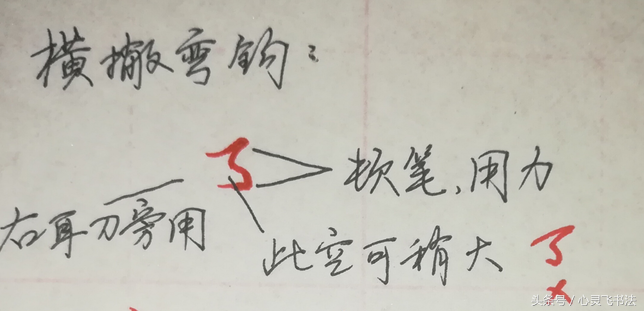 横撇弯钩：
顿笔、用力
右耳刀旁用
此空可稍大
头条号 / 心灵飞书法